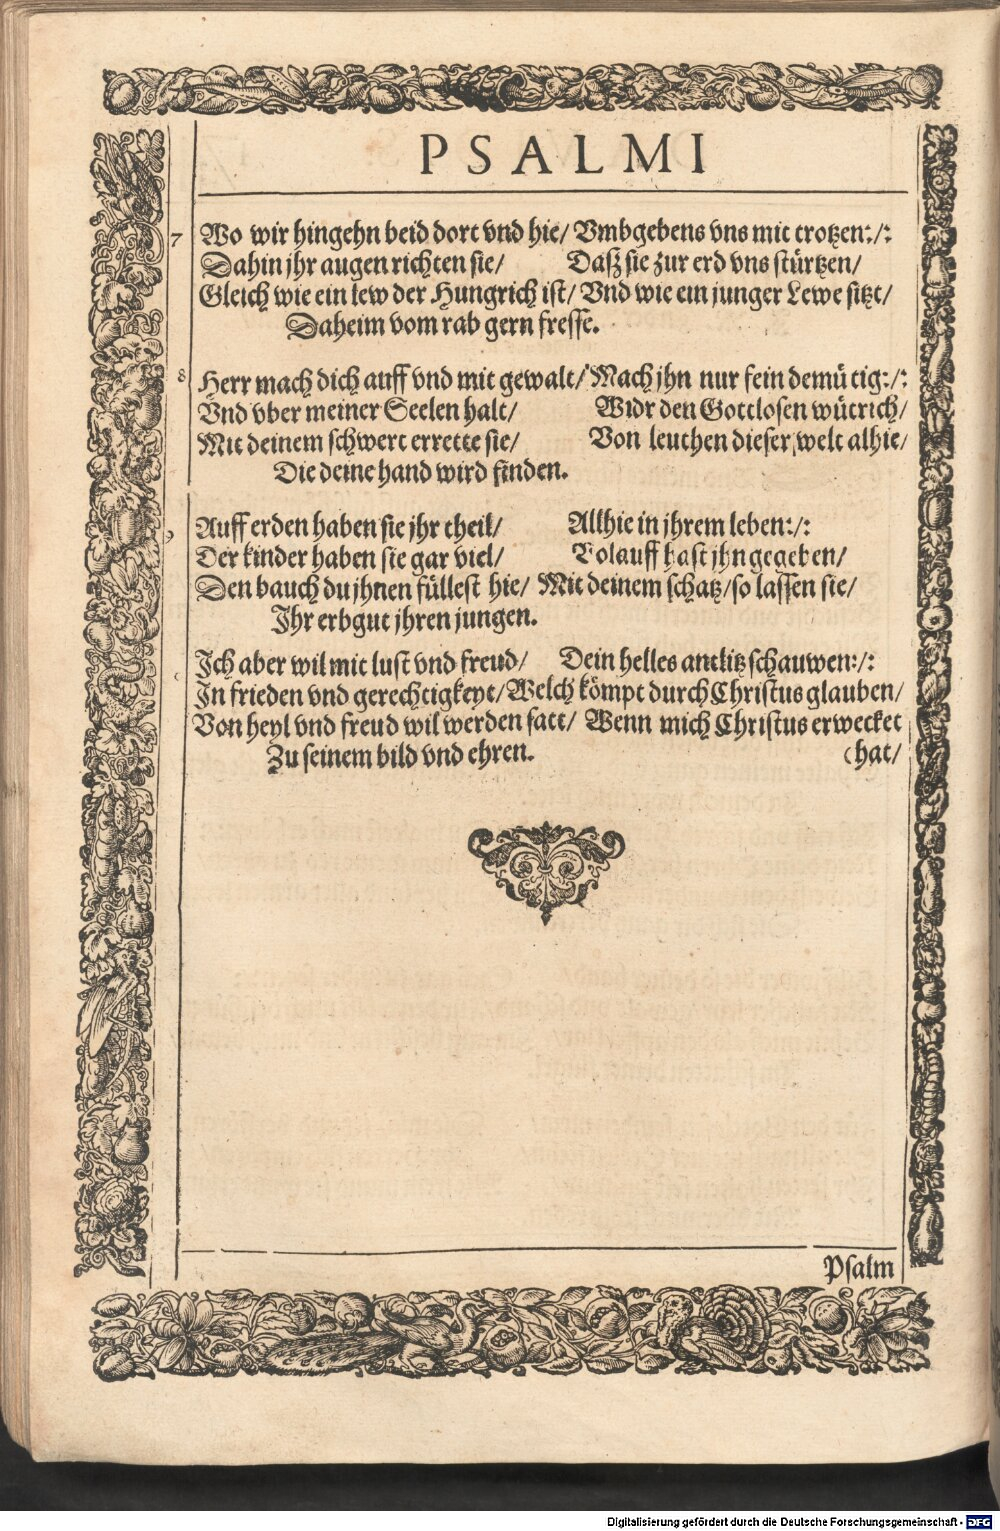 PSALMI
7 Wo wir hingehn beid dort vnd hie/ Vmbgebens vns mit trotzen:/:
Dahin jhr augen richten sie/ Dasz sie zur erd vns stürtzen/
Gleich wie ein lew der Hungrich ist/ Vnd wie ein junger Lewe sitzt/
Daheim vom rab gern fresse.
8 Herr mach dich auff vnd mit gewalt/ Mach jhn nur fein demütig:/:
Vnd vber meiner Seelen halt/ Widr den Gottlosen wütrich/
Mit deinem schwert errette sie/ Von leuthen dieser welt alhie/
Die deine hand wird finden.
9 Auff erden haben sie jhr theil/ Allhie in jhrem leben:/:
Der kinder haben sie gar viel/ Volauff hast jhn gegeben/
Den bauch du jhnen füllest hie/ Mit deinem schatz/so lassen sie/
Ihr erbgut jhren jungen.
Ich aber wil mit lust vnd freud/ Dein helles antlitz schauwen:/:
In frieden vnd gerechtigkeyt/ Welch kömpt durch Christus glauben/
Von heyl vnd freud wil werden satt/ Wenn mich Christus erwecket
Zu seinem bild vnd ehren. (hat/
Psalm
Digitalisierung gefördert durch die Deutsche Forschungsgemeinschaft - DFG